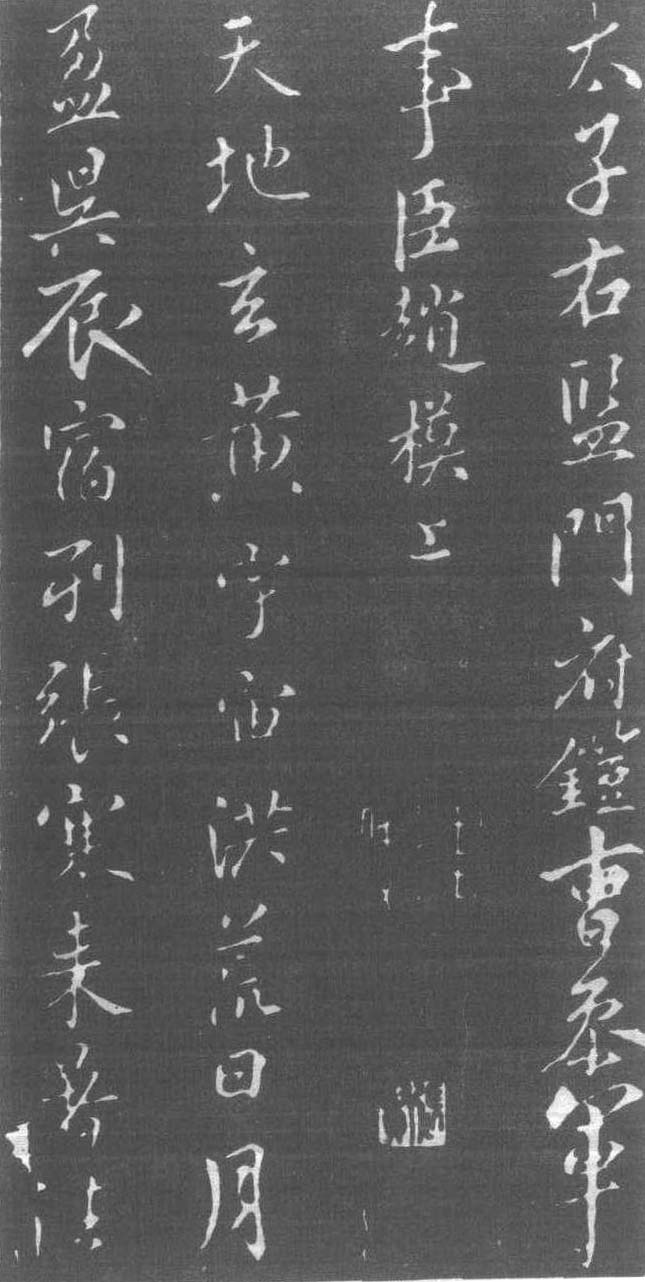 太子右監門府鎧曹参軍
事臣趙模上
天地玄黃宇宙洪荒日月
盈昃辰宿列張寒来暑往